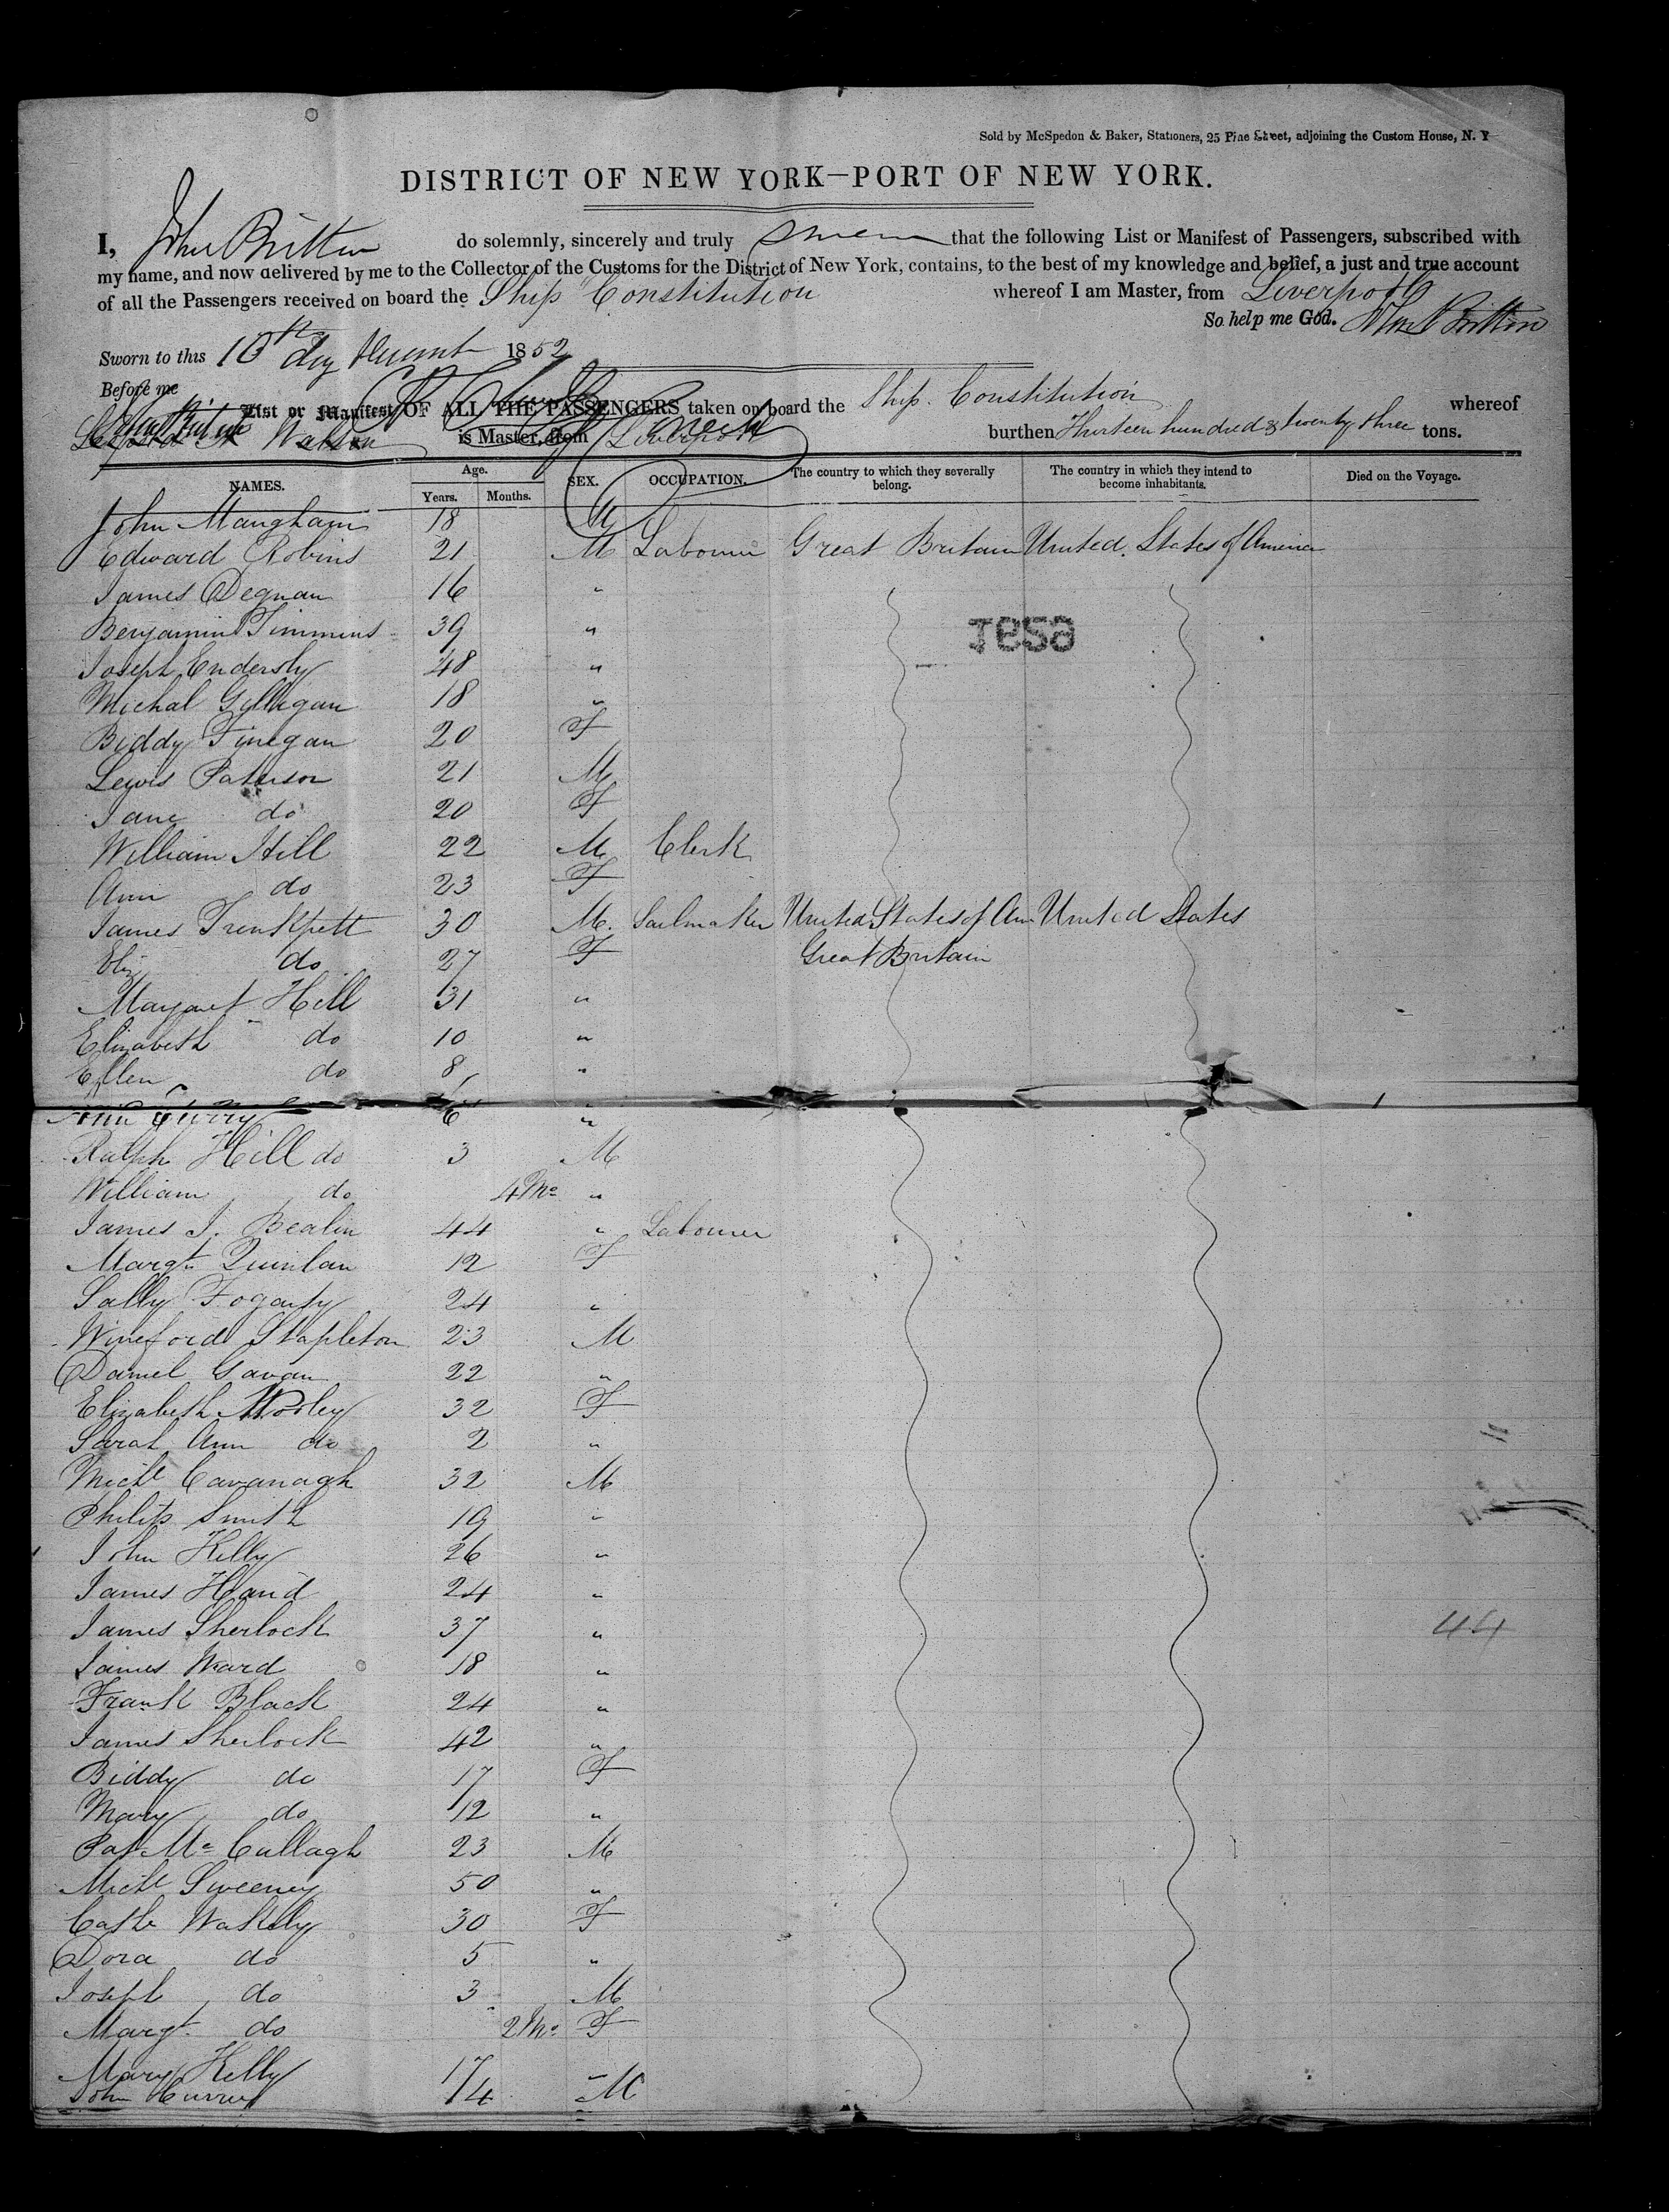 Sold by McSpedon & Baker, Stationers, 25 Pine Street, adjoining the Custom House, N. Y
DISTRICT OF NEW YORK—PORT OF NEW YORK.
I, John Britton do solemnly, sincerely and truly swear that the following List or Manifest of Passengers, subscribed with
my name, and now delivered by me to the Collector of the Customs for the District of New York, contains, to the best of my knowledge and belief, a just and true account
of all the Passengers received on board the Ship Constitution whereof I am Master, from Liverpool
So help me God. John Britton
Sworn to this 10th day 1852
Before me
List or Manifest OF ALL THE PASSENGERS taken on board the Ship Constitution whereof
is Master, from Liverpool burthen Thirteen hundred & twenty three tons.
NAMES. Age. Years. Months. SEX. OCCUPATION. The country to which they severally belong. The country in which they intend to become inhabitants. Died on the Voyage.
John Maugham 18 M
Edward Robins 21 M Labourer Great Britain United States of America
James Degnan 16 "
Benjamin Timmins 39 "
Joseph Endersly 48 "
Michal Gilligan 18 "
Biddy Finegan 20 F
Lewis Paterson 21 M
Jane do 20 F
William Hill 22 M Clerk
Ann do 23 F
James 30 M. Sailmaker United States of Am United States
Eliz do 27 F Great Britain
Margaret Hill 31 "
Elizabeth do 10 "
Ellen do 8 "
Ann Curry 6 "
Ralph Hill do 3 M
William do 4 Mo "
James J. Bealin 44 " Labourer
Margt Quinlan 12 F
Sally Fogarty 24 "
Wineford Stapleton 23 M
Daniel Gavan 22 "
Elizabeth Morley 32 F
Sarah Ann do 2 "
Michl Cavanagh 32 M
Philip Smith 19 "
John Kelly 26 "
James Hand 24 "
James Sherlock 37 "
44
James Ward 18 "
Frank Black 24 "
James Sherlock 42 "
Biddy do 17 F
Mary do 12 "
Pat Mc Cullagh 23 M
Michl Sweeney 50 "
Cath Wakely 30 F
Dora do 5 "
Joseph do 3 M
Margt do 2 Mo F
Mary Kelly 17 "
John Curry 4 M